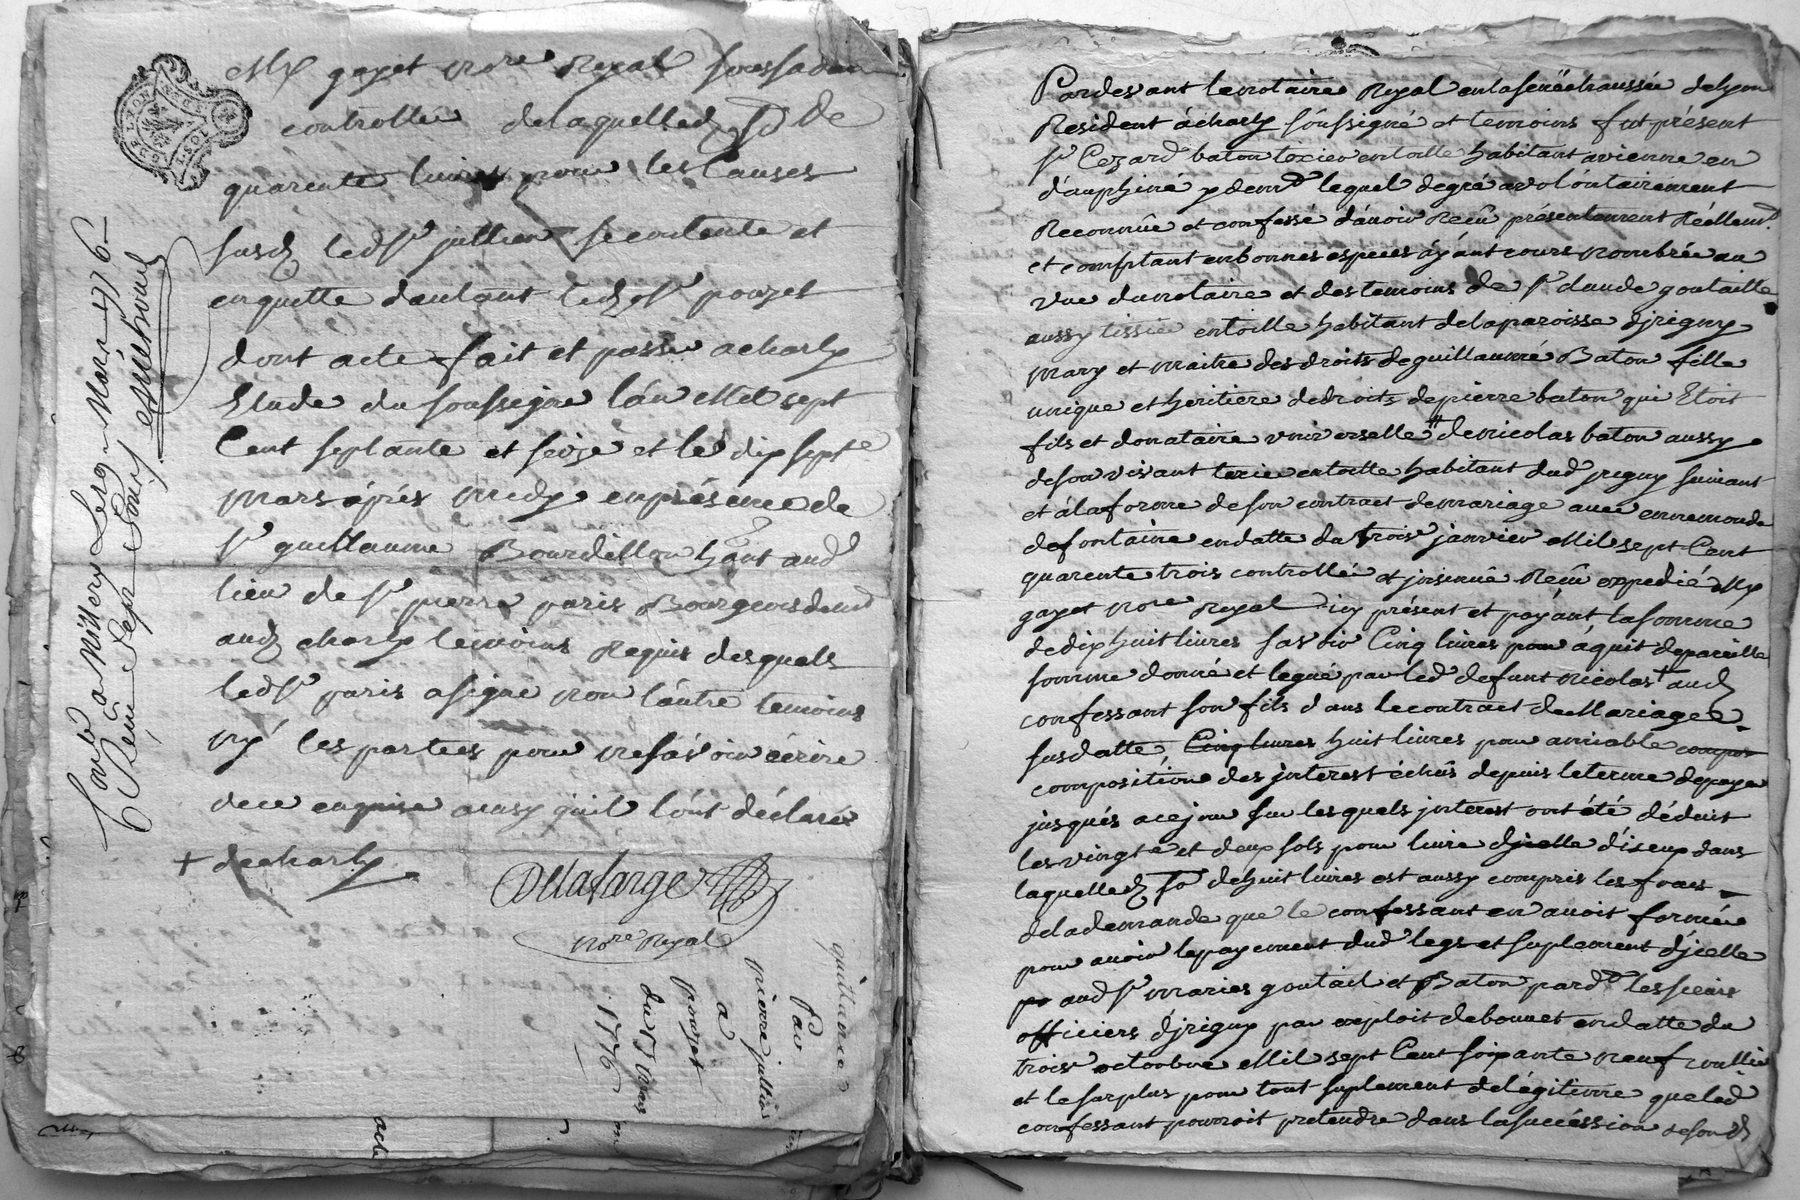 Me gayet nore Royal soussa
controllée delaquelled. so de
quarente livres pour les Causes
susd. led sr jullien se contente et
en quitte dautant led sr pouzet
dont acte fait et passé a charly
Etude du soussigné l'an Mil sept
Cent septante et seize et le dix septe
mars áprés midy en présence de
sr guillaume Bourdillon habt aud
lieu de st pierre paris Bourgeois dem
aud. charly temoins Requis desquels
led sr paris a signé non láutre temoins
ny les parties pour ne sávoir écrire
de ce enquise ainsy qu'il lónt déclaré
+ de charly
Delafarge
nore Royal
Conlé a Millery Le 29 Mars 1776
Reçu sept sous
quittance
par
pierre jullien
a
pouzet
du 17 Mars
1776
LYON
acte
Pardevant le notaire Royal en la sénéchaussée de lyon
Resident á charly sóussigné et temoins fut présent
sr Cezard baton tixier en toille habitant a vienne en
d'auphiné lequel de gré a volóntairement
Reconnüe et confessé d'avoir Reçû présentement Réellemt
et comptant en bonnes especes áyánt cours nombrée au
vue du notaire et des temoins de sr claude goutaille
aussy tissié en toille habitant de la paroisse d'jrigny
mary et maitre des droits de guillaumé Baton fille
unique et heritiere de droits de pierre baton qui Etoit
fils et donataire universelle de nicolas baton aussy
de son vivant texier en toille habitant dud jrigny suivant
et á la forme de son contract de mariage avec ennemonde
defontaine en datte du trois janvier Mil sept Cent
quarente trois controllé et jnsinué Reçû expedié Me
gayet nore Royal icy présent et payánt la somme
de dix huit livres savoir Cinq livres pour áquit de pareille
somme donné et legué par led defunt nicolas + aud.
confessant son fils dans le contract de Mariage
susdatté, Cinq livres huit livres pour amiable compo
composition des jnterest échûs depuis le terme de paye
jusqués a ce jour sur les quels jnterest ont été déduit
les vingte et deux sols pour livre d'jcelle dixeux dans
laquelled. so de huit livres est aussy compris les frais
de la demande que le confessant en avoit formée
pour avoir le payement dud legs et suplement d'jcelle
po aud sr mariés goutail et Baton pard les sieurs
officiers d'jrigny par exploit de bonnet en datte du
trois octoobre Mil sept Cent soixante neuf conllé
et le surplus pour tout suplement de légitime que led
confessant pouroit pretendre dans la succéssion de son d.